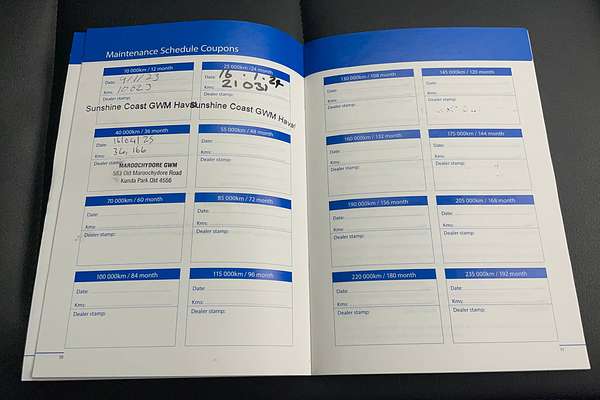 Maintenance Schedule Coupons
10 000km / 12 month
Date:
Kms: 10023
Dealer stamp:
Sunshine Coast GWM Haval
25 000km / 24 month
Date: 16 . 1 . 24
Kms: 21031
Dealer stamp:
Sunshine Coast GWM Haval
40 000km / 36 month
Date: 16/04/25
Kms: 36,166
Dealer stamp:
MAROOCHYDORE GWM
583 Old Maroochydore Road
Kunda Park Qld 4556
55 000km / 48 month
Date:
Kms:
Dealer stamp:
70 000km / 60 month
Date:
Kms:
Dealer stamp:
85 000km / 72 month
Date:
Kms:
Dealer stamp:
100 000km / 84 month
Date:
Kms:
Dealer stamp:
115 000km / 96 month
Date:
Kms:
Dealer stamp:
130 000km / 108 month
Date:
Kms:
Dealer stamp:
145 000km / 120 month
Date:
Kms:
Dealer stamp:
160 000km / 132 month
Date:
Kms:
Dealer stamp:
175 000km / 144 month
Date:
Kms:
Dealer stamp:
190 000km / 156 month
Date:
Kms:
Dealer stamp:
205 000km / 168 month
Date:
Kms:
Dealer stamp:
220 000km / 180 month
Date:
Kms:
Dealer stamp:
235 000km / 192 month
Date:
Kms:
Dealer stamp: